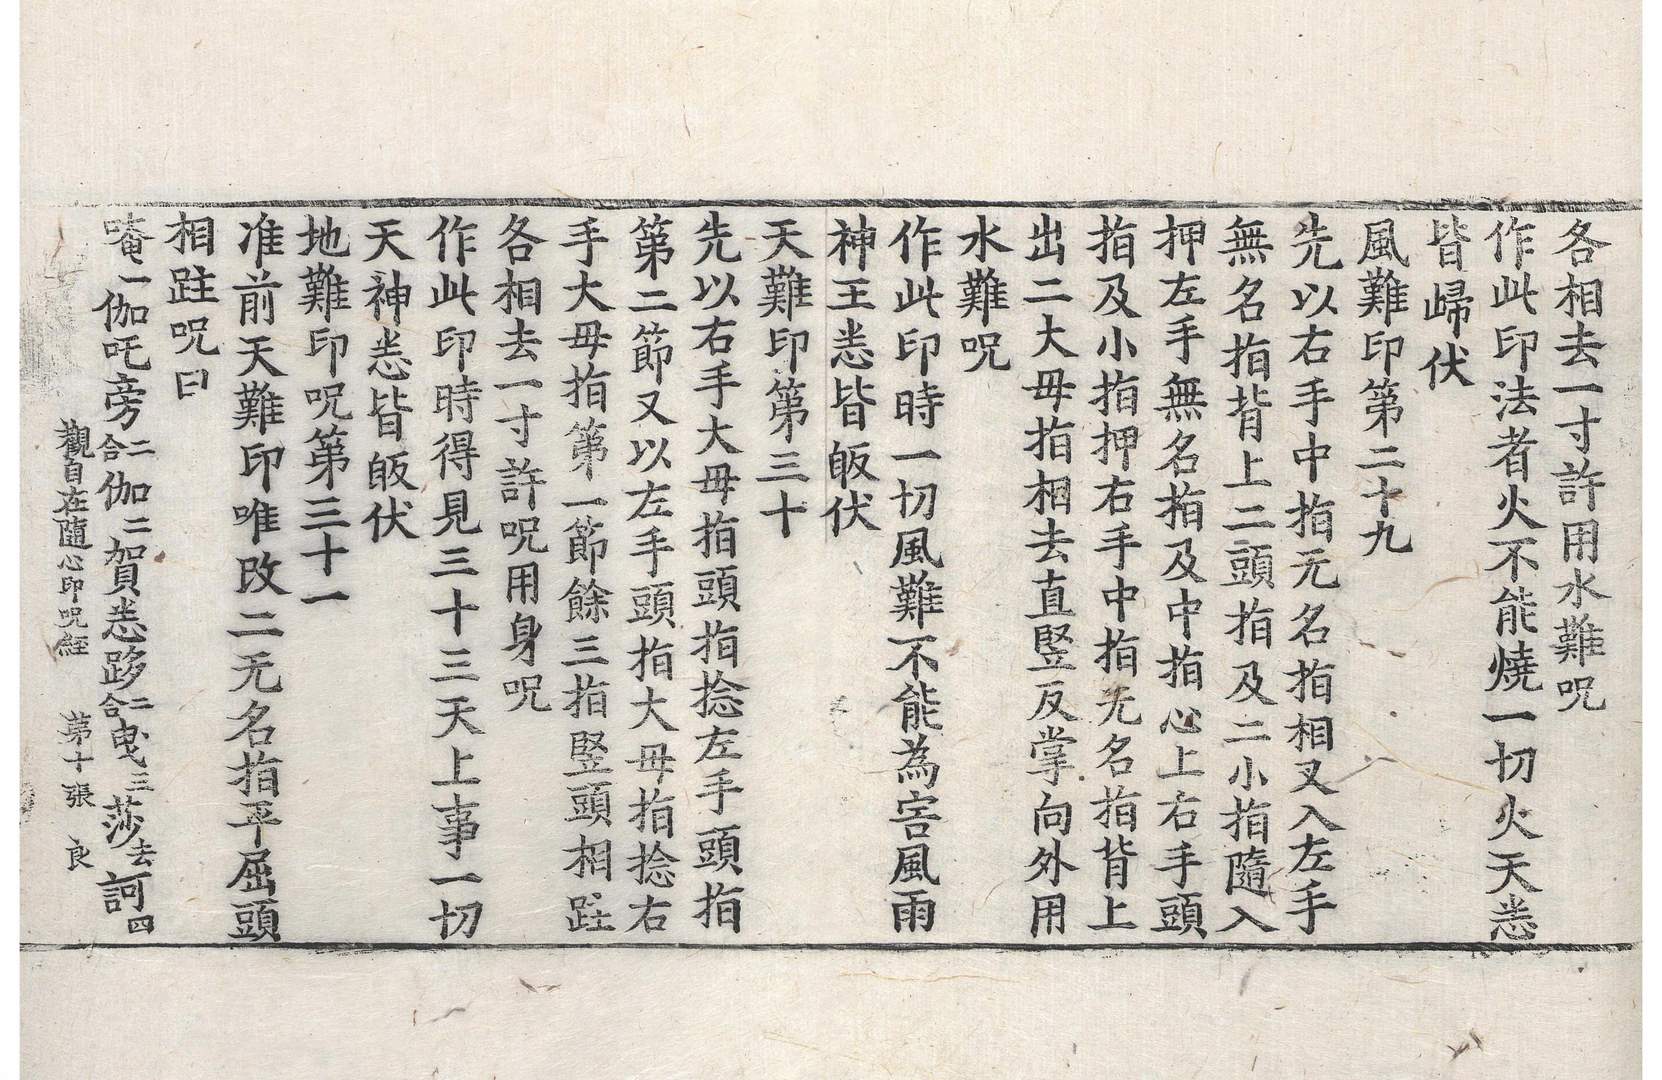 各相去一寸許用水難呪
作此印法者火不能燒一切火天悉
皆歸伏
風難印第二十九
先以右手中指无名指相叉入左手
無名指背上二頭指及二小指隨入
押左手無名指及中指心上右手頭
指及小指押右手中指无名指背上
出二大毋指相去直竪反掌向外用
水難呪
作此印時一切風難不能為害風雨
神王悉皆皈伏
天難印第三十
先以右手大毋指頭指捻左手頭指
第二節又以左手頭指大毋指捻右
手大毋指第一節餘三指竪頭相跓
各相去一寸許呪用身呪
作此印時得見三十三天上事一切
天神悉皆皈伏
地難印呪第三十一
准前天難印唯改二无名指平屈頭
相跓呪曰
唵一伽吒旁二合伽二賀悉跢二合曳三莎去訶四
觀自在隨心印呪經 第十張 良